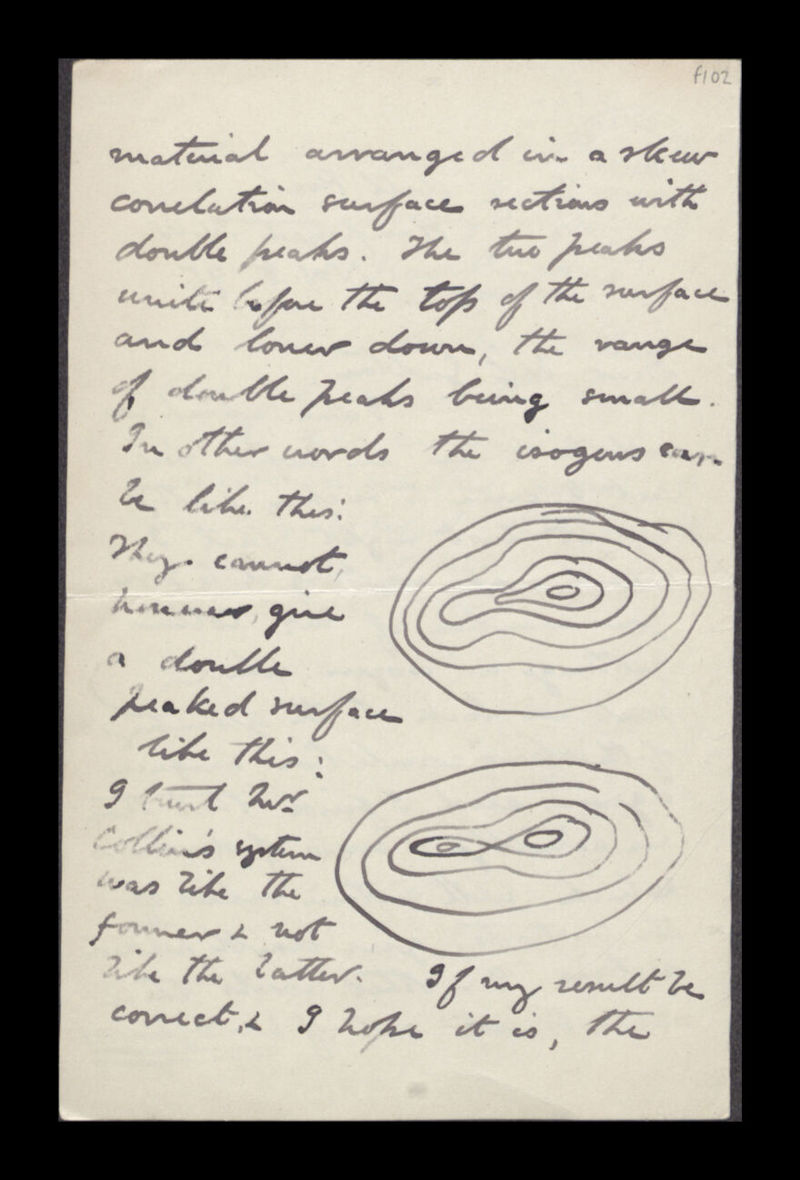 f102
material arranged in a skew
correlation surface sections with
double peaks. The two peaks
unite before the top of the surface
and lower down, the range
of double peaks being small.
In other words the isogens can
be like this:
They cannot,
however, give
a double
peaked surface
like this:
I trust Mr
Collin's system
was like the
former & not
like the latter. If my result be
correct, & I hope it is, the